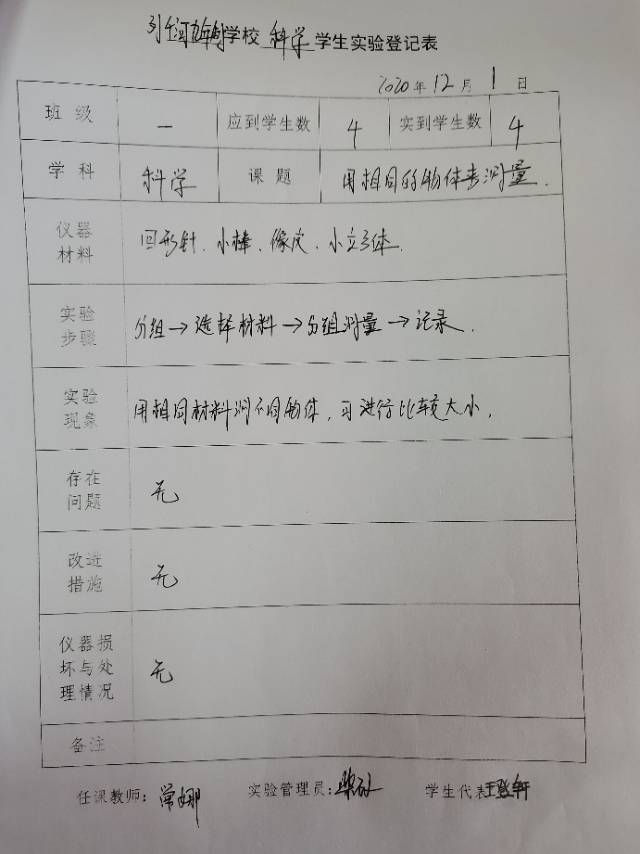 九年制学校 科学 学生实验登记表
2020年12月1日
班级 一 应到学生数 4 实到学生数 4
学科 科学 课题 用相同的物体来测量.
仪器材料 回形针、小棒、像皮、小立方体.
实验步骤 分组→选择材料→分组测量→记录.
实验现象 用相同材料测不同物体,可进行比较大小.
存在问题 无
改进措施 无
仪器损坏与处理情况 无
备注
任课教师:常娜 实验管理员: 学生代表